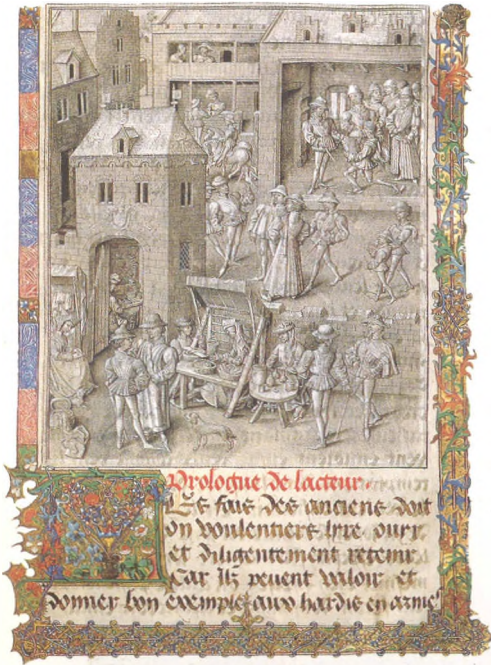 Prologue de lacteur.
Les fais des anciens doit
on voulentiers lyre ouyr
et diligentement retenir
Car ilz peuent valoir et
donner bon exemple aux hardis en armes